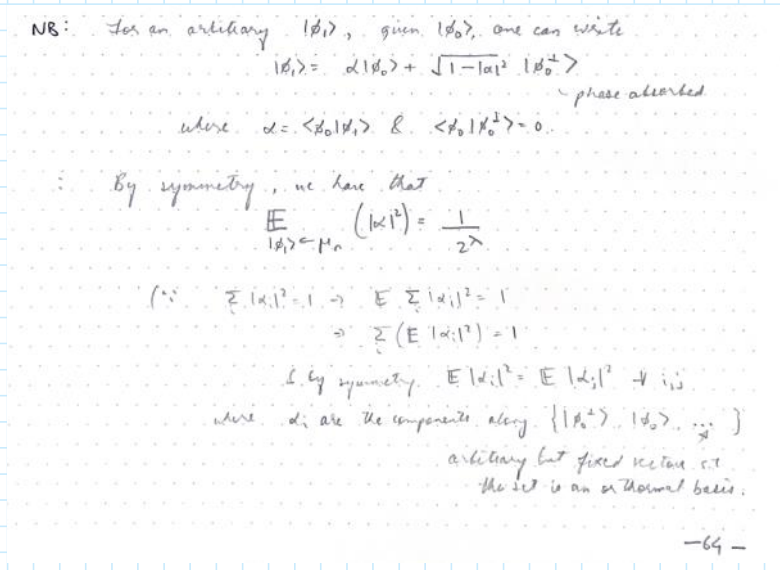 NB: For an arbitrary |ϕ₁⟩, given |ϕ₀⟩, one can write
|ϕ₁⟩ = α|ϕ₀⟩ + √(1-|α|²) |ϕ₀^⊥⟩
phase absorbed
where α = ⟨ϕ₀|ϕ₁⟩ & ⟨ϕ₀|ϕ₀^⊥⟩ = 0.
: By symmetry, we have that
𝔼_{|ϕ₁⟩←μₙ} (|α|²) = 1/2^λ
(∵ Σ_i |α_i|² = 1 ⇒ 𝔼 Σ_i |α_i|² = 1
⇒ Σ_i (𝔼 |α_i|²) = 1
& by symmetry 𝔼|α_i|² = 𝔼|α_j|² ∀ i,j
where α_i are the components along {|ϕ₀^⊥⟩, |ϕ₀⟩, ... }
arbitrary but fixed vectors s.t.
the set is an orthormal basis.
-64-